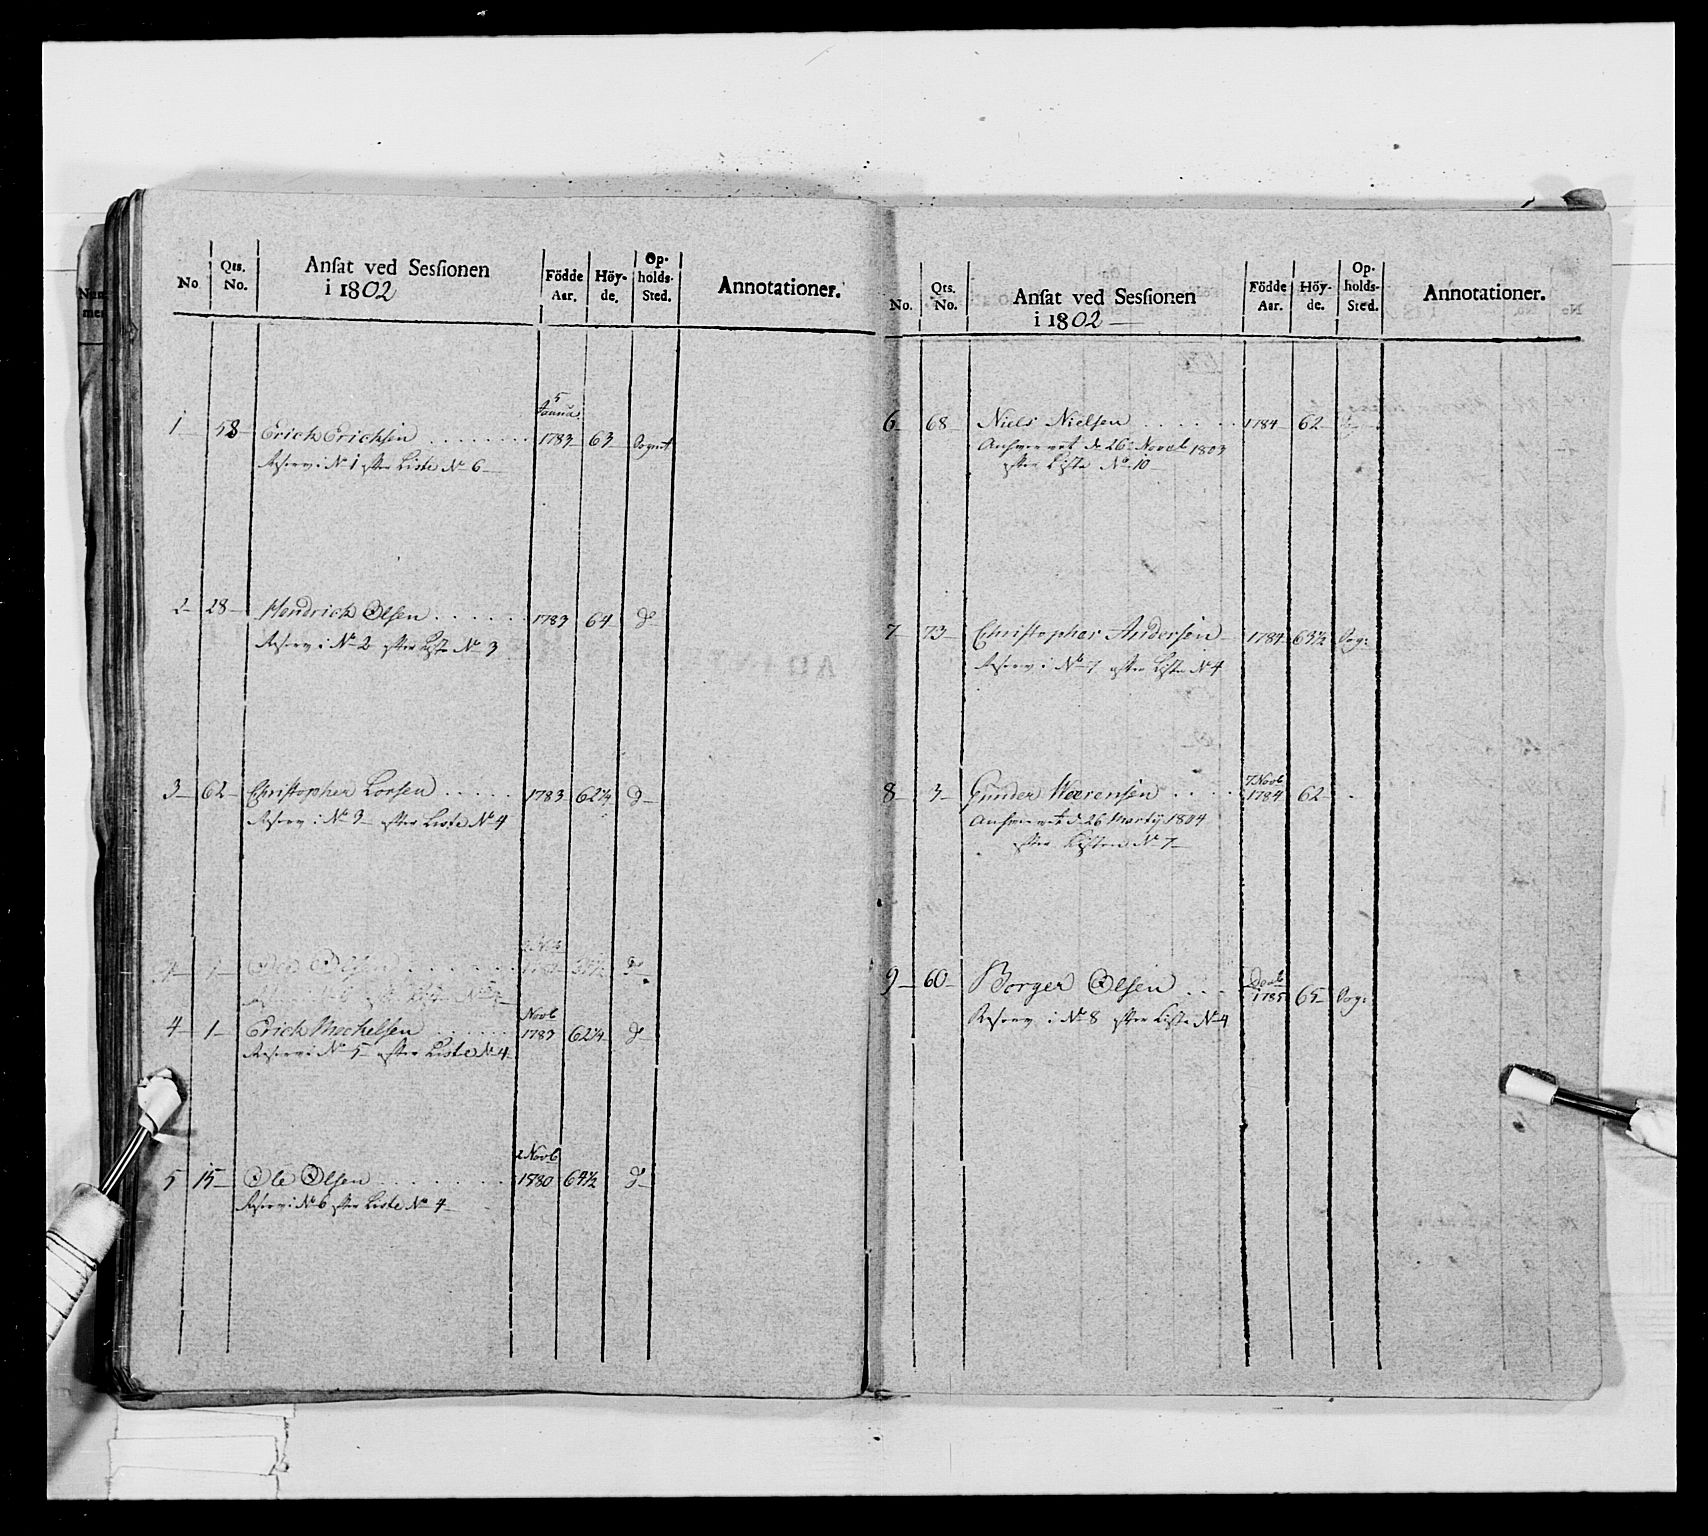 No. Qts. No. Ansat ved Sessionen i 1802 Födde Aar. Höyde. Opholds-Sted. Annotationer.
5 Janua.
1 58 Erick Ericksen 1783 63 Sognet
Reserv i No 1 efter Liste No 6
2 28 Hendrick Olsen 1783 64 do
Reserv i No 2 efter Liste No 3
3 62 Christopher Larsen 1783 62¼ do
Reserv i No 3 efter Liste No 4
4 1 Ole Olsen
Novb
4 1 Erick Mechelsen 1783 62¼ do
Reserv i No 5 efter Liste No 4
2 Novb
5 15 Ole Olsen 1780 64½ do
Reserv i No 6 efter Liste No 4
No. Qts. No. Ansat ved Sessionen i 1802 Födde Aar. Höy-de. Op-holds-Sted. Annotationer.
6 68 Niels Nielsen 1784 62
d. 26 Novbr 1803
efter Liste No 10
7 73 Christopher Andersen 1784 63½ Sog:
Reserv i No 7 efter Liste No 4
7 Novb
8 3 Gunder 1784 62
d. 26 Martij 1804
efter Listen No 7
9 60 Borger Olsen 1785 65 Sog:
Reserv i No 8 efter Liste No 4